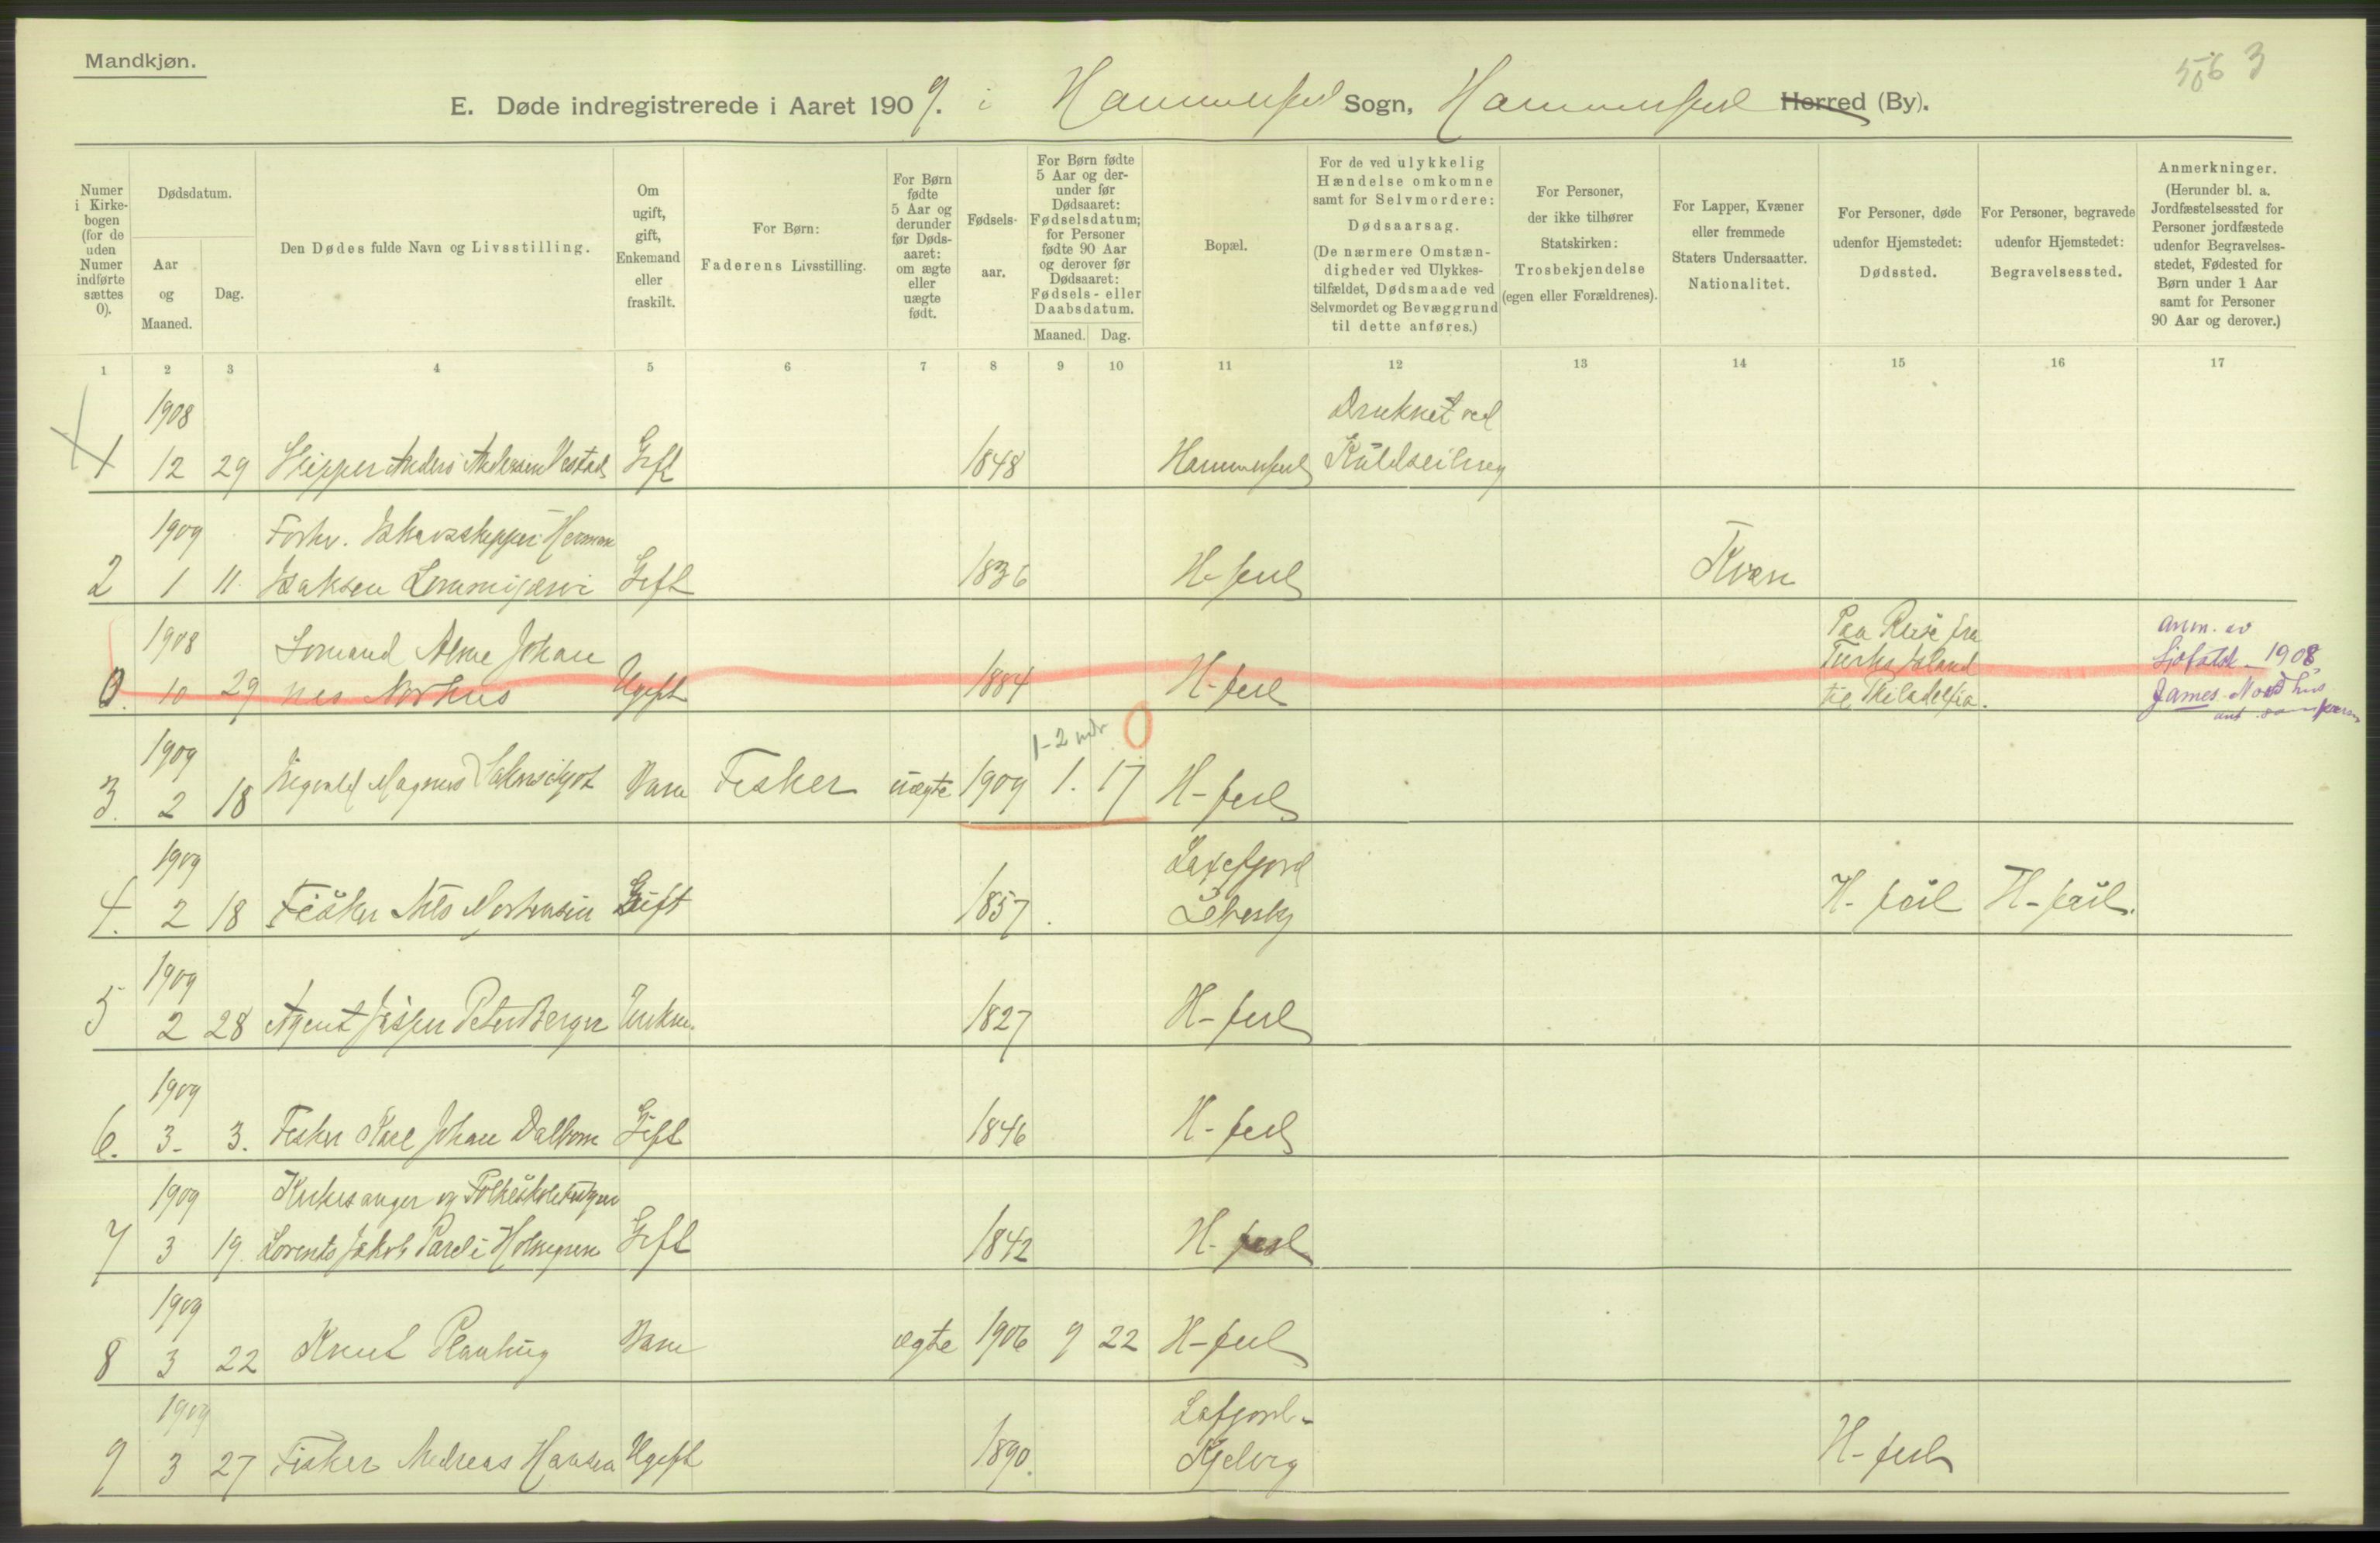 Mandkjøn.
506 3
E. Døde indregistrerede i Aaret 1909. i Hammerfest Sogn, Hammerfest Herred (By).
Numer i Kirkebogen (for de uden Numer indførte sættes 0).
Dødsdatum.
Aar og Maaned.
Dag.
Den Dødes fulde Navn og Livsstilling.
Om ugift, gift, Enkemand eller fraskilt.
For Børn: Faderens Livsstilling.
For Børn fødte 5 Aar og derunder før Dødsaaret: om ægte eller uægte født.
Fødselsaar.
For Børn fødte 5 Aar og derunder før Dødsaaret: Fødselsdatum; for Personer fødte 90 Aar og derover før Dødsaaret: Fødsels- eller Daabsdatum.
Maaned. Dag.
Bopæl.
For de ved ulykkelig Hændelse omkomne samt for Selvmordere: Dødsaarsag. (De nærmere Omstændigheder ved Ulykkestilfældet, Dødsmaade ved Selvmordet og Bevæggrund til dette anføres.)
For Personer, der ikke tilhører Statskirken: Trosbekjendelse (egen eller Forældrenes).
For Lapper, Kvæner eller fremmede Staters Undersaatter. Nationalitet.
For Personer, døde udenfor Hjemstedet: Dødssted.
For Personer, begravede udenfor Hjemstedet: Begravelsessted.
Anmerkninger. (Herunder bl. a. Jordfæstelsessted for Personer jordfæstede udenfor Begravelsesstedet, Fødested for Børn under 1 Aar samt for Personer 90 Aar og derover.)
1 2 3 4 5 6 7 8 9 10 11 12 13 14 15 16 17
1908 Druknet ved
1 12 29 Skipper Anders Andersen Gift 1848 Hammerfest Kuldseiling
1909 Forhv. Ishavsskipper Herman
2 1 11. Isaksen Lommijærvi Gift 1836 H-fest Kvæn
1908 Sømand Alme Johan Paa Reise fra anm. av
0. 10 29 nes Norhus Ugift 1884 H-fest Turks Island 1908,
til Philadelfia. James Nordhus
1909 1-2 mdr 0
3. 2 18 Magnus Barn Fisker uægte 1909 1. 17 H-fest
1909 Laxefjord
4. 2 18 Fisker Nils Mortensen Gift 1857. Lebesby H-fest H-fest.
1909
5 2 28 Agent Jesper Peter Berger Enkem. 1827 H-fest
1909
6. 3- 3. Fisker Karl Johan Dalbom Gift 1846 H-fest
1909 Kirkesanger og
7 3 19. Lorents Jakob Gift 1842 H-fest
1909
8 3 22 Knut Barn ægte 1906 9 22 H-fest
1909 Lafjord-
9 3 27 Fisker Andreas Hansen Ugift 1890. Kjelvig H-fest